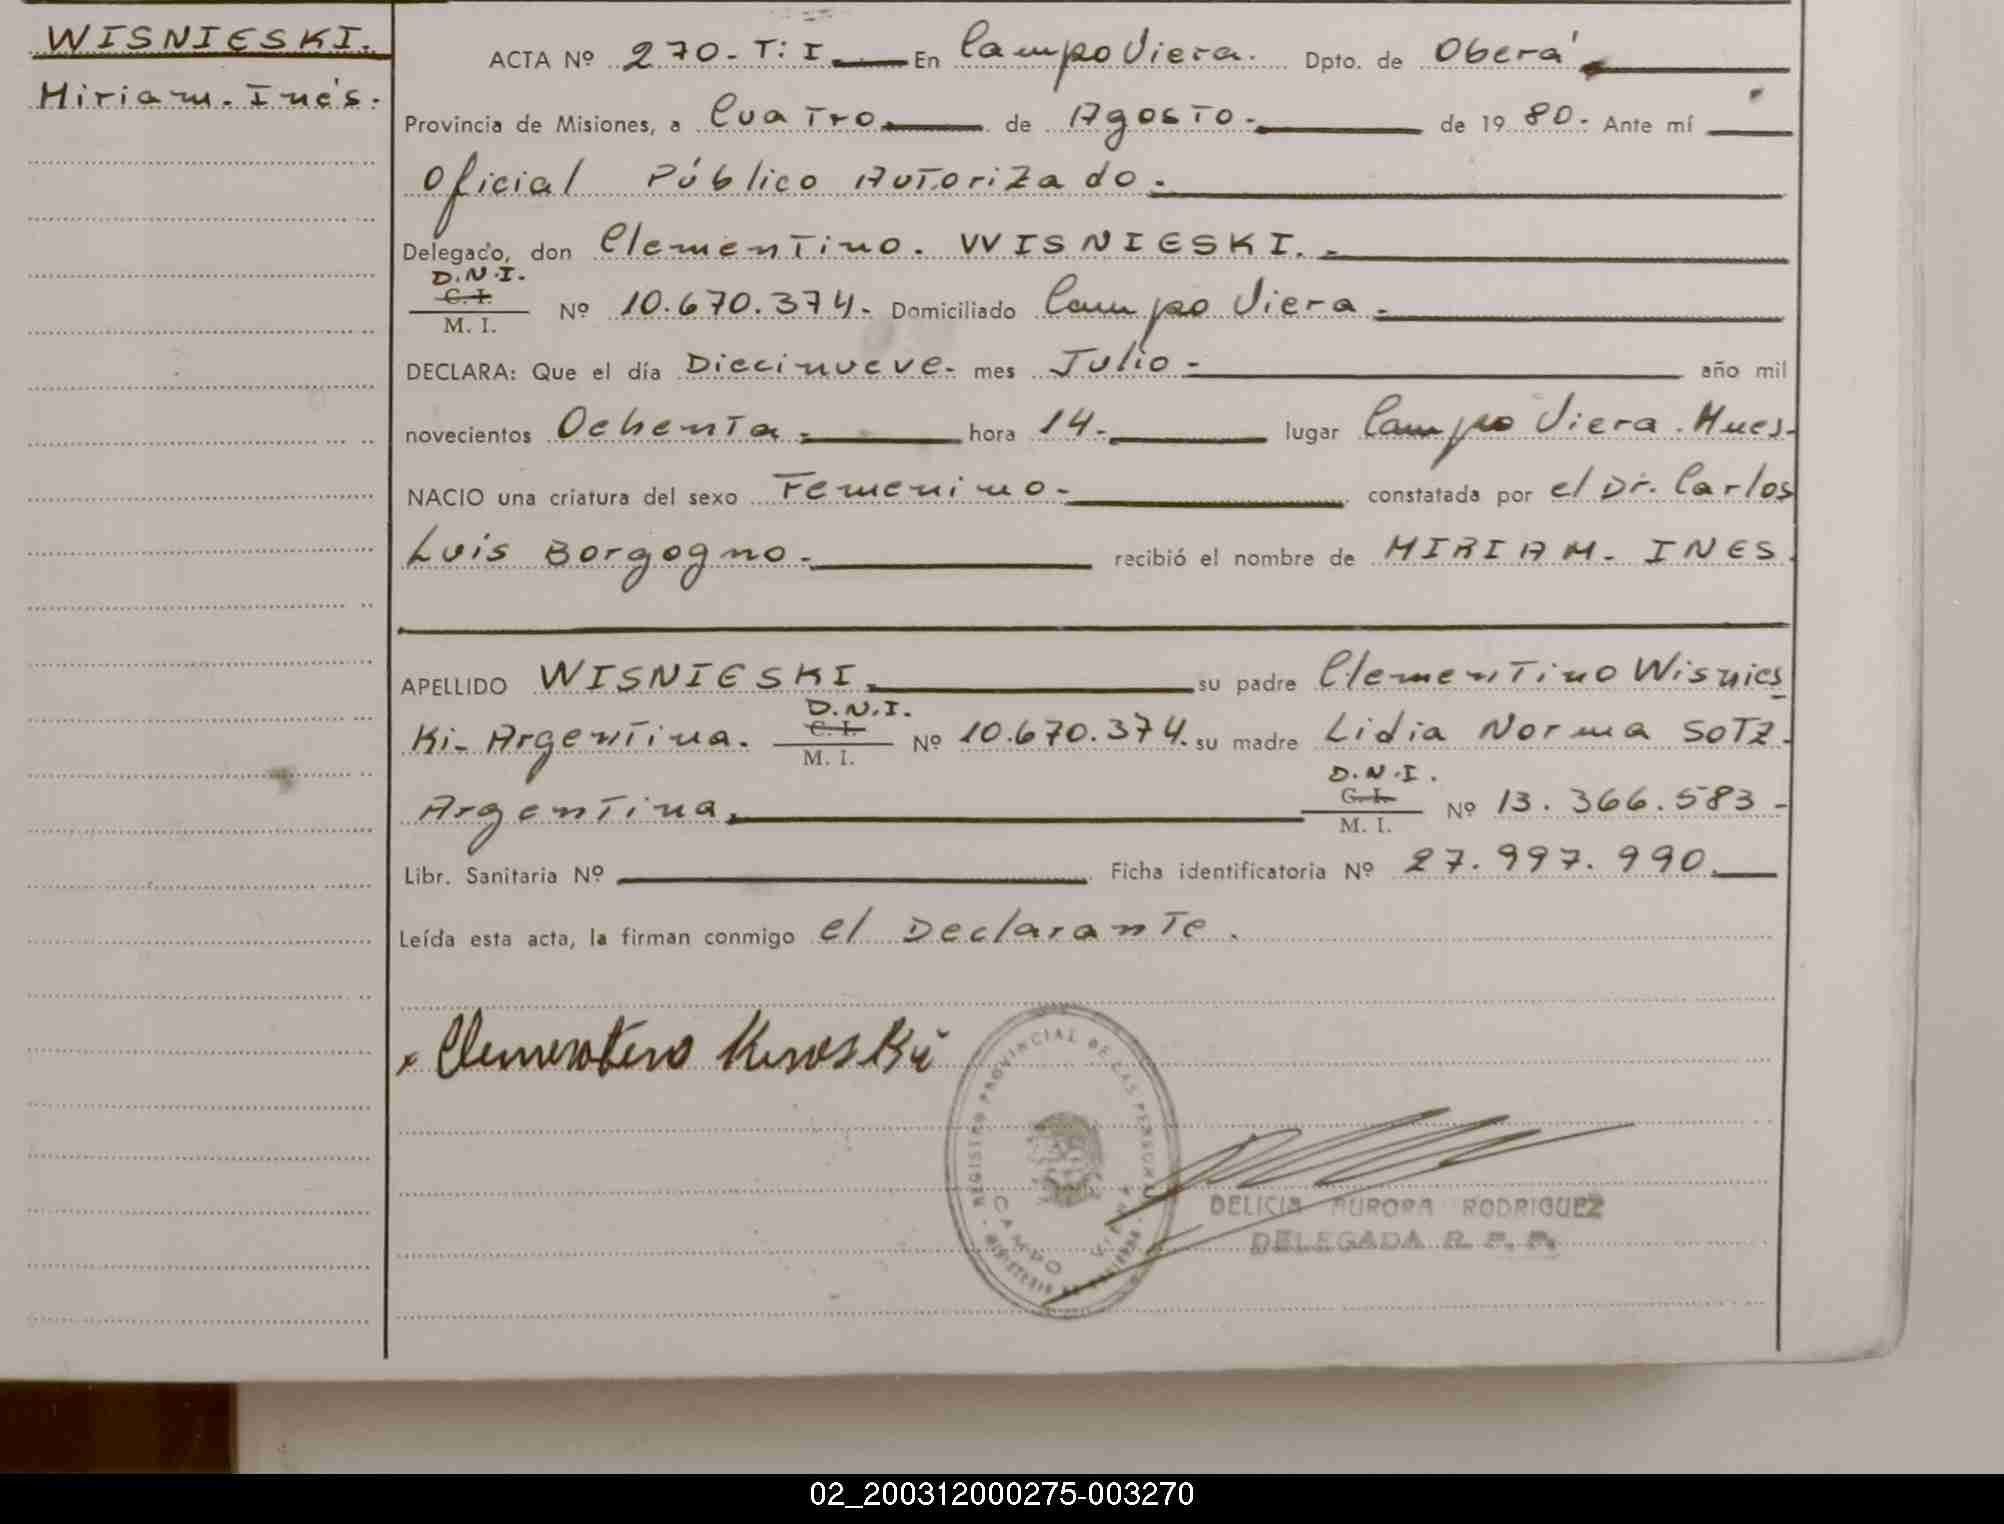 WISNIESKI.
Miriam. Inés.
ACTA Nº 270- T: I En Campo Viera. Dpto. de Oberá
Provincia de Misiones, a Cuatro de Agosto. de 1980. Ante mí
Oficial Público Autorizado.
Delegado, don Clementino. WISNIESKI.
D.N.I.
C. I.
M. I. Nº 10.670.374. Domiciliado Campo Viera.
DECLARA: Que el día Diecinueve. mes Julio - año mil
novecientos Ochenta. hora 14. lugar Campo Viera. Mnes.
NACIO una criatura del sexo Femenino- constatada por el Dr. Carlos
Luis Borgogno. recibió el nombre de MIRIAM. INES.
APELLIDO WISNIESKI. su padre Clementino Wisnies
D.N.I.
C. I.
Ki- Argentina. M. I. Nº 10.670.374. su madre Lidia Norma SOTZ.
D.N.I.
C. I.
Argentina. M. I. Nº 13.366.583-
Libr. Sanitaria Nº Ficha identificatoria Nº 27.997.990.
Leída esta acta, la firman conmigo el Declarante.
Clementino
REGISTRO PROVINCIAL DE LAS PERSONAS
CAMPO VIERA
MINISTERIO DE GOBIERNO
DELICIA AURORA RODRIGUEZ
DELEGADA R. P. P.
02_200312000275-003270